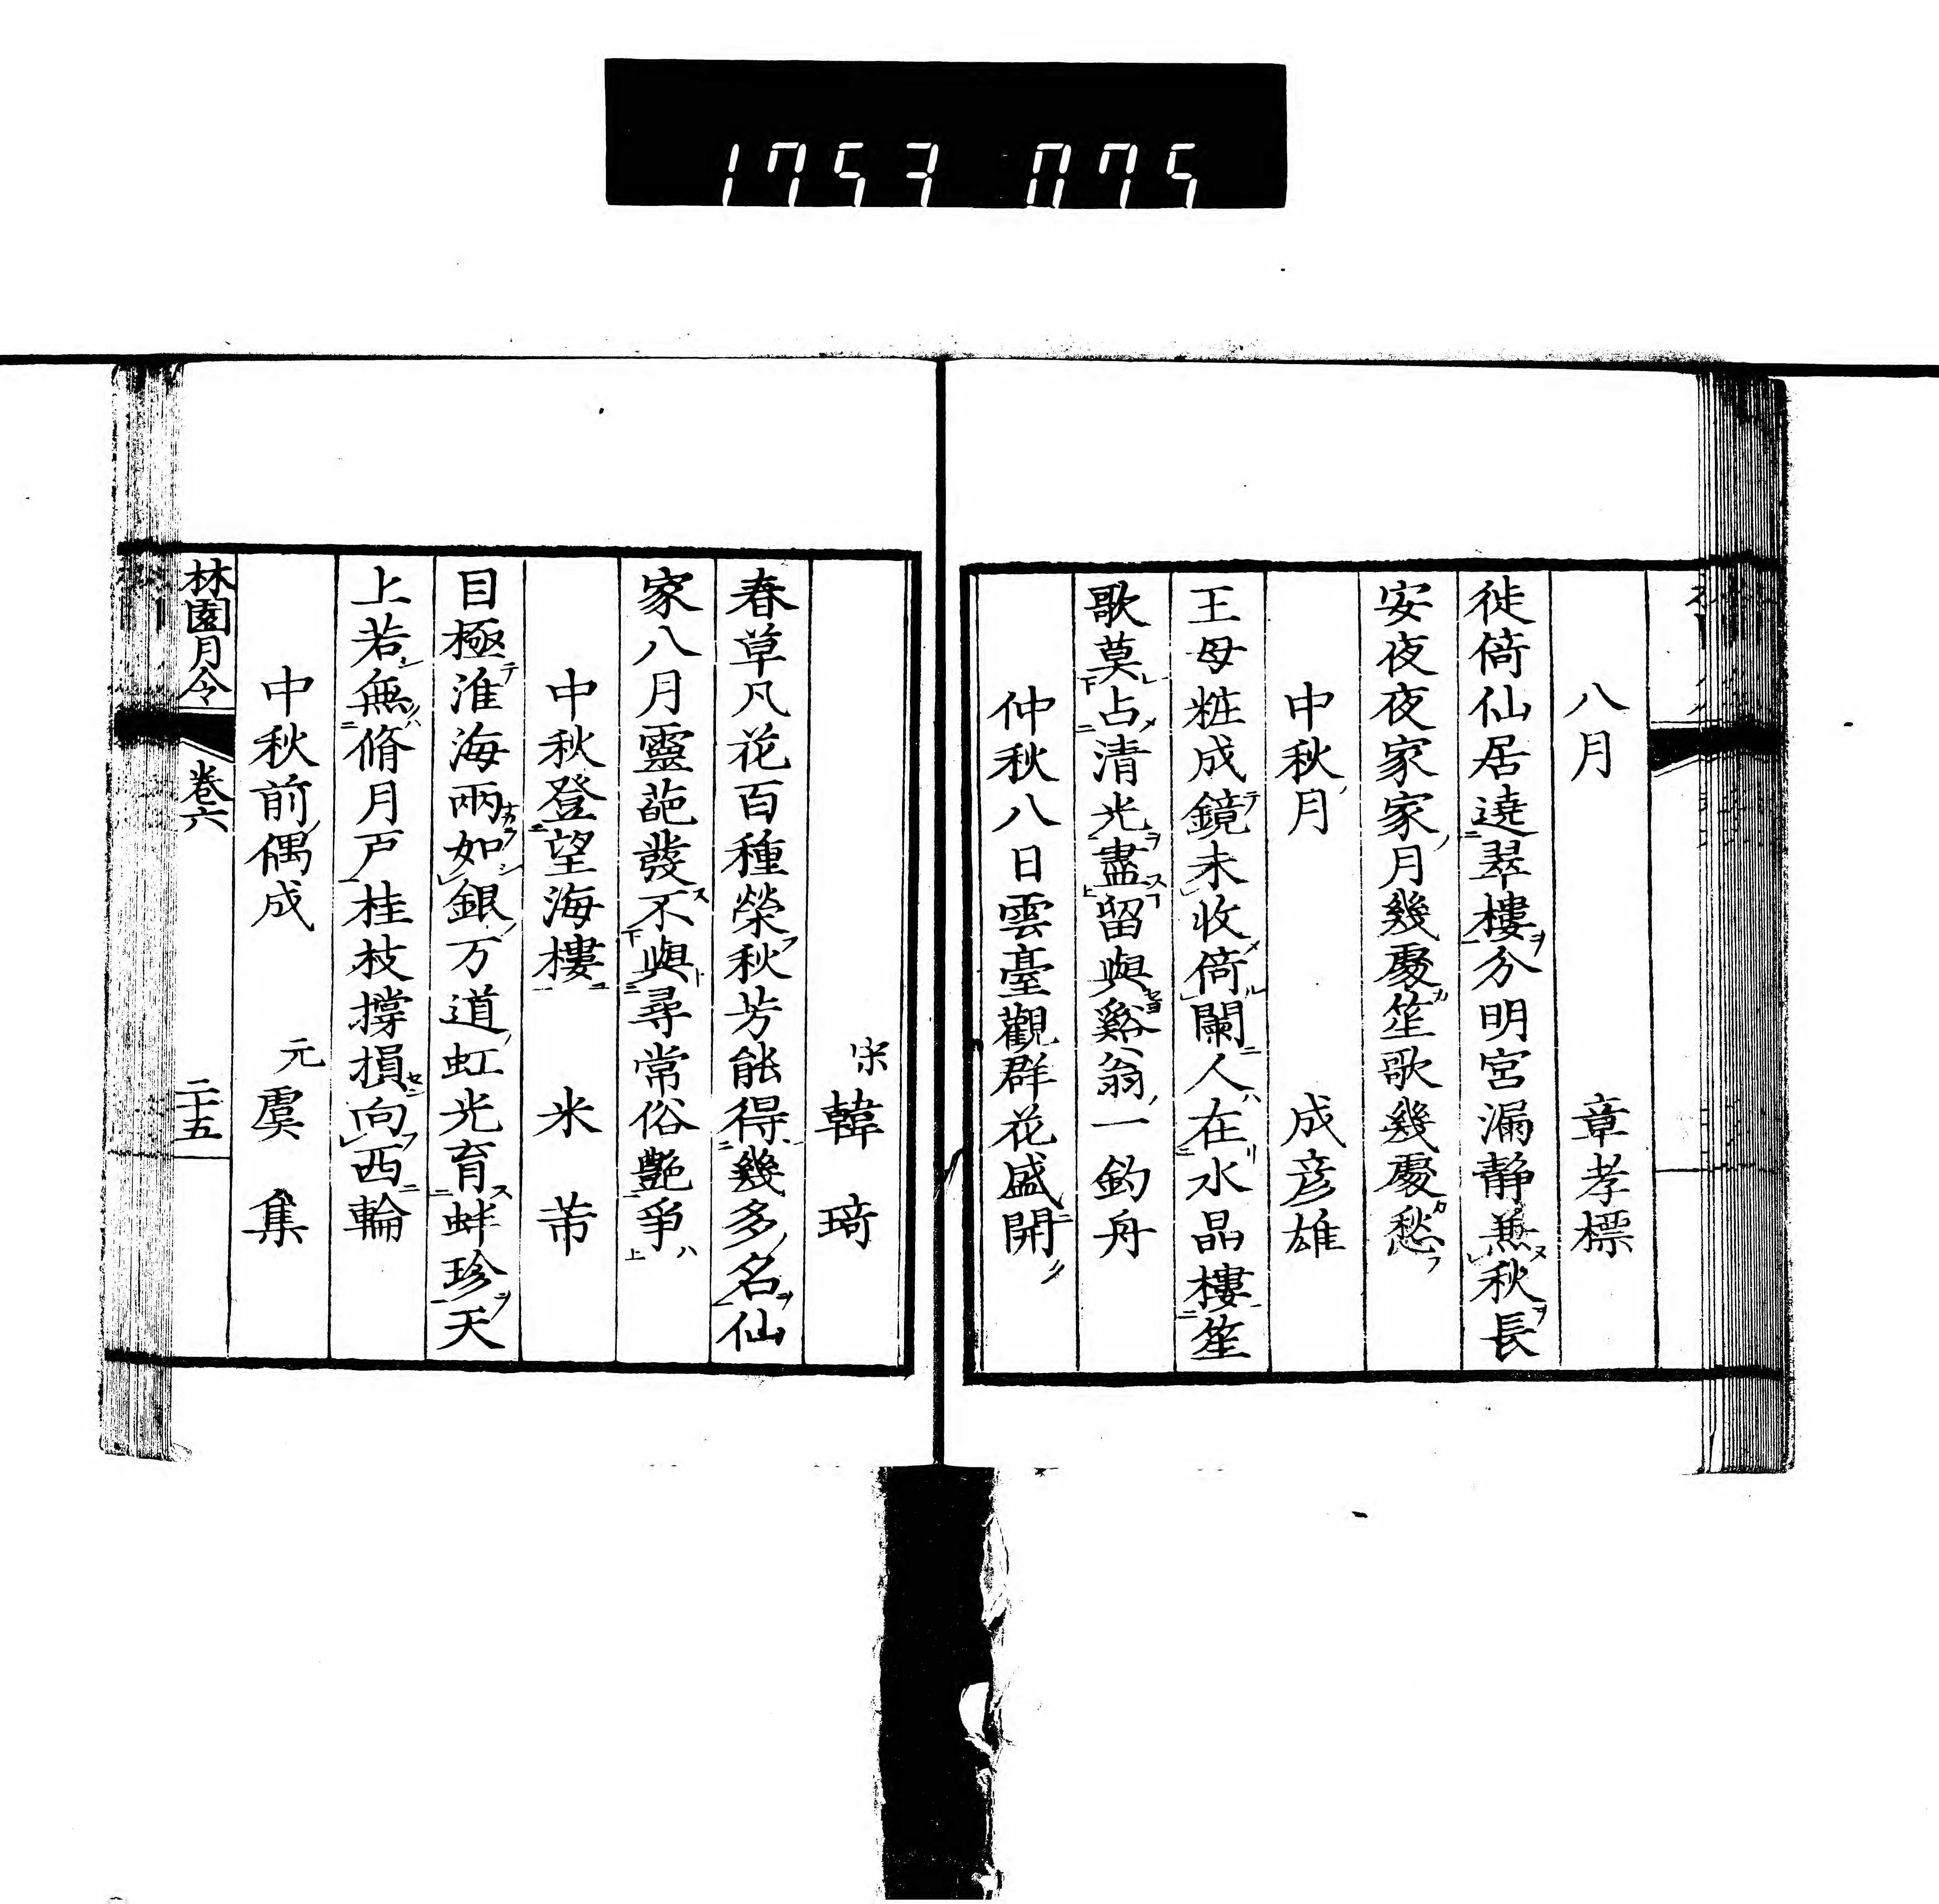 1753 075
八月 章孝標
徙倚仙居遶翠樓分明宮漏静蒹秋長
安夜夜家家月幾處笙歌幾處愁
中秋月 成彦雄
王母粧成鏡未收倚闌人在水晶樓笙
歌莫占清光盡留與谿翁一釣舟
仲秋八日雲臺觀群花盛開
宋 韓琦
春草凡花百種榮秋芳能得幾多名仙
家八月靈葩發不與尋常俗艶爭
中秋登望海樓 米芾
目極淮海兩如銀万道虹光育蚌珍天
上若無脩月戸桂枝撐損向西輪
中秋前偶成 元 虞集
林園月令 卷六 二十五